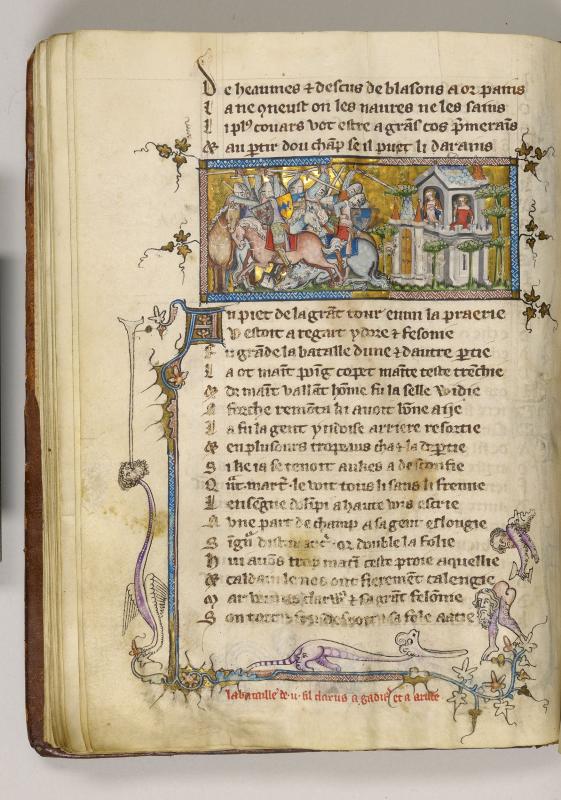 De heaumes ⁊ descus de blasons a or painis
L a ne ꝯneust on les naures ne les sains
L i plꝰ couars vot estre a grãs cos p̃merains
⁊ au ptir dou chãp se il puet li darains
Au piet de la grãt tour enmi la praerie
V estoit a regart ydore ⁊ fesonie
F u grãde la bataille dune ⁊ dautre ꝑtie
L a ot maĩt puĩg copet maĩte teste trẽchie
⁊ dr maĩt vallãt hõme fu la selle widie
A forche remõta ki auoit bõne aije
L a fu la gent yndoise arriere resortie
⁊ en plusours tropiaus cha ⁊ la dꝑtie
S i ke ia se tenoit aukes a desconfie
Q ñt marc̃ le voit tous li sans li fremie
L enseigne a haute vois escrie
A vne part de champ a sa gent eslongie
S or double la folie
H ui auõs trop mar̃i ceste proie aquellie
⁊ caldain le nes ont fierement calengie
M ar ⁊ sa grãt felõnie
S on sa fole
la bataille de .ii. fil clarus a gadiꝰ et a ariste